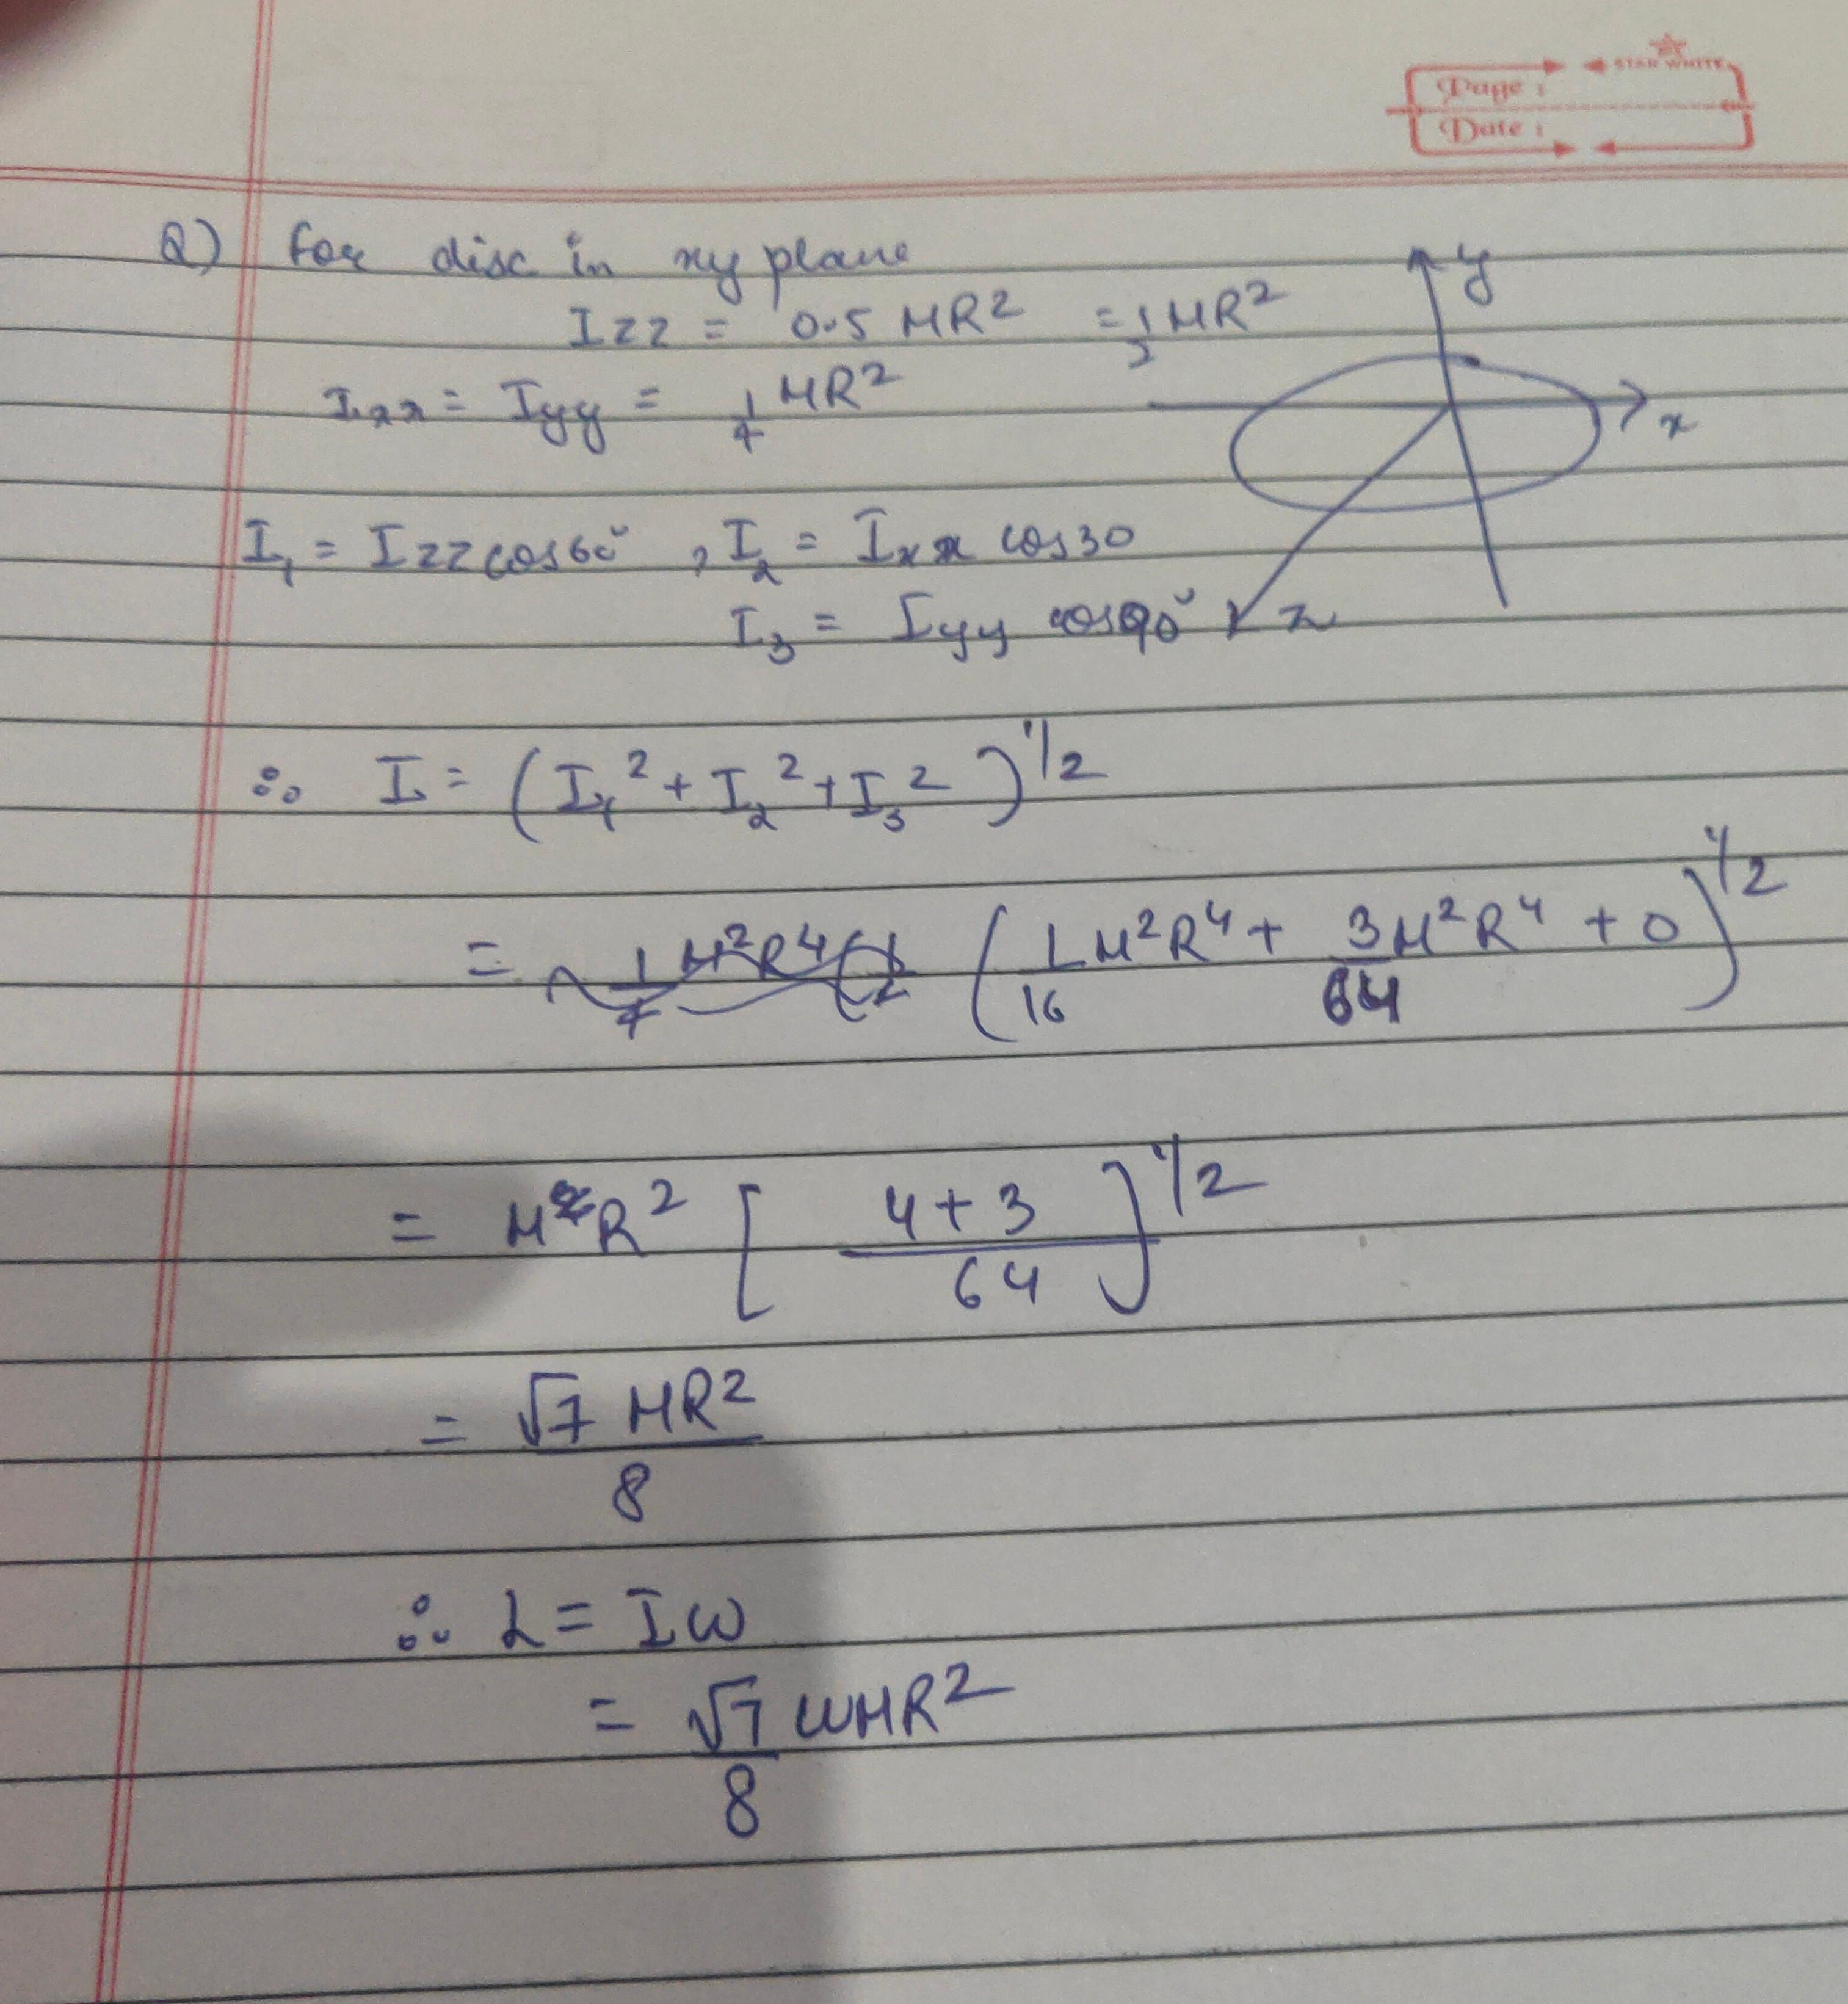 STAR WHITE
Page :
Date :
Q) for disc in xy plane
Izz = 0.5 MR² = 1/2 MR²
Ixx = Iyy = 1/4 MR²
y
x
z
I₁ = Izz cos60° , I₂ = Ixx cos30
I₃ = Iyy cos90°
∴ I = (I₁² + I₂² + I₃²)^1/2
= (1/16 M²R⁴ + 3/64 M²R⁴ + 0)^1/2
= MR² [4+3/64]^1/2
= √7 MR²/8
∴ L = Iω
= √7/8 ωMR²